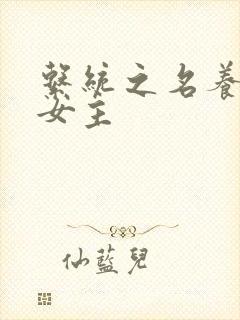 繫統之名養
女主
仙藍兒